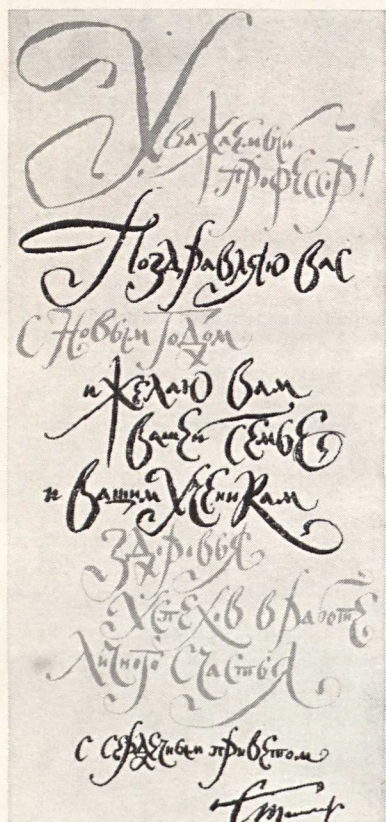 Уважаемый
профессор!
Поздравляю вас
с Новым Годом
и желаю вам
вашей семье,
и вашим ученикам
здоровья
успехов в работе
личного счастья
с сердечным приветом